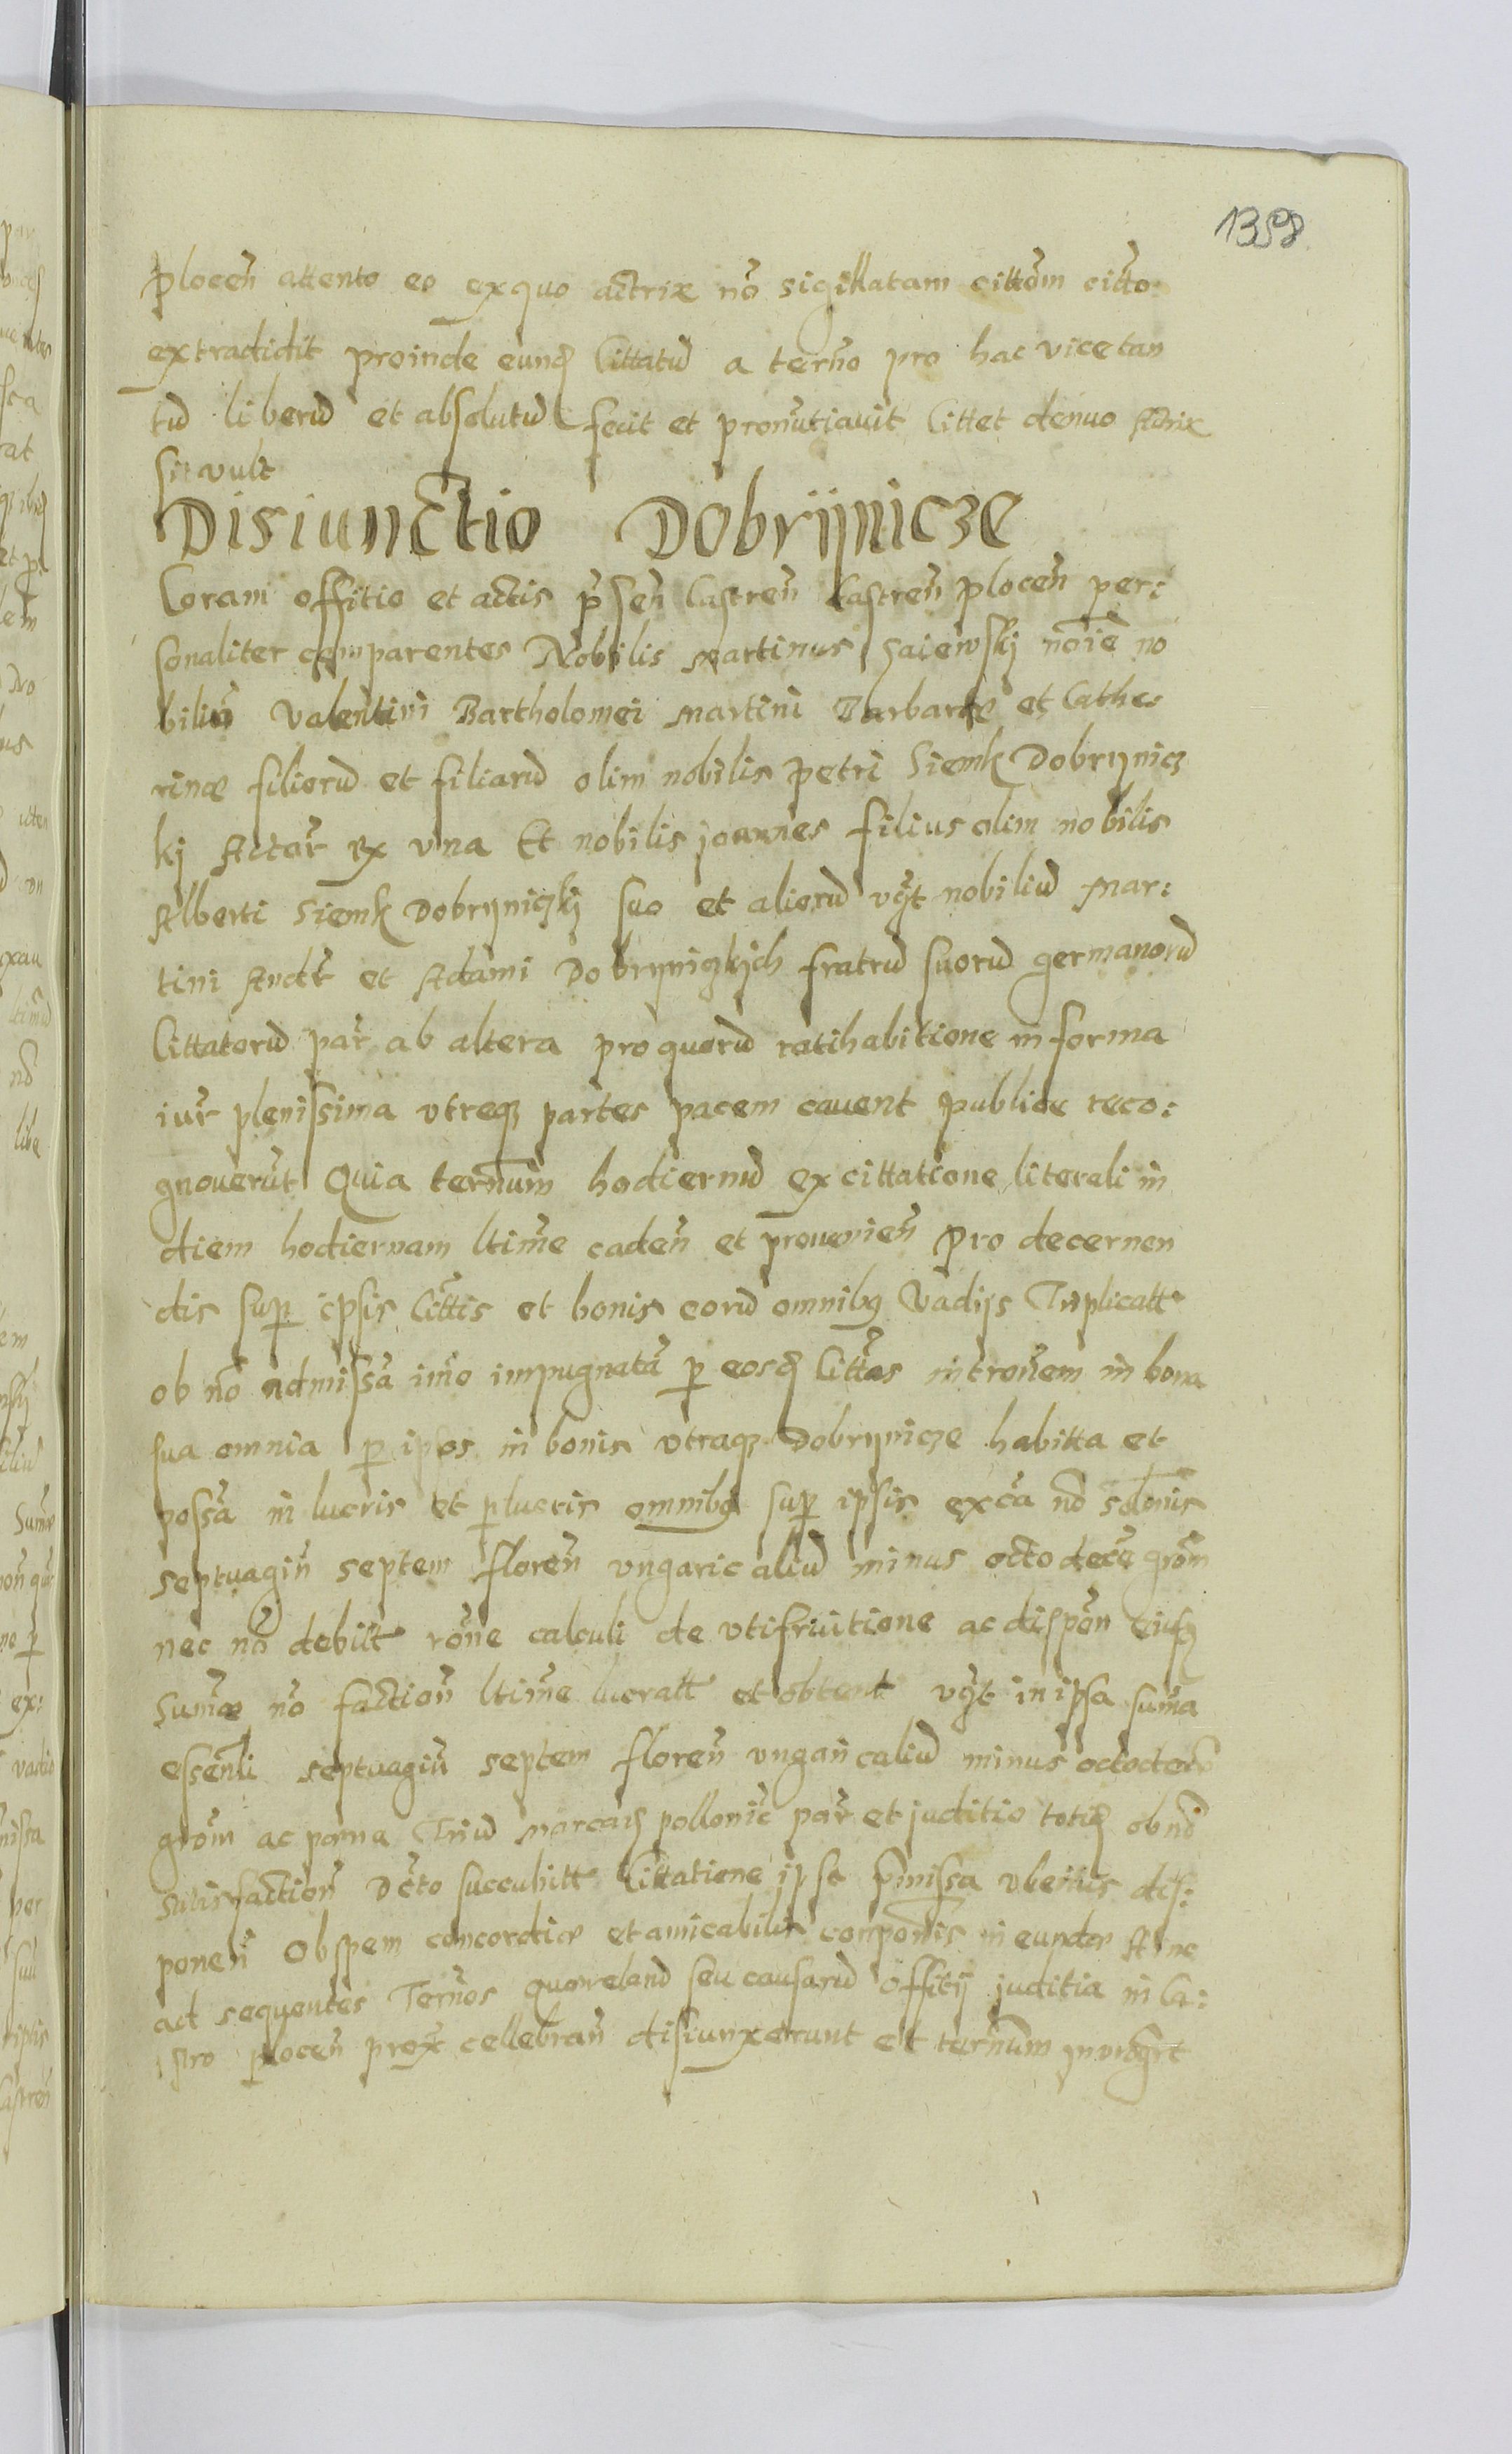 1398
plocen̄ attento eo exquo actrix nō sigillatam cittōm citto:
extradidit proinde eund Cittatū a terno pro hac vice tan
tū liberū et absolutū fecit et pronūtiavit Cittet denuo Actrix
si vult
Disiunctio Dobrÿnicze
Coram offitio et actis p̄sen̄ Castren̄ Castren̄ plocen̄ per:
sonaliter comparentes Nobilis Martinus Saiewskj noīe no
biliū Valentini Bartholomei Martini Barbaræ et Cathe
rinæ filiorū et filiarū olim nobilis Petri Siemk Dobrÿnicz
kj Actor̄ ex vna Et nobilis joannes filius olim nobilis
Alberti Siemk Dobrÿniczkj suo et aliorū vgt nobiliū Mar:
tini et Adami Dobrÿniczkich fratrū suorū germanorū
Cittatorū par̄ ab altera pro quorū ratihabitione in forma
iur̄ plenissima vtreqz partes pacem cavent publice reco:
gnoverūt Quia ternum hodiernū ex cittatione literali in
diem hodiernam ltime caden̄ et provenien̄ pro decernen
dis sup ipsis Cittis et bonis eorū omnibq Vadijs Triplicatt
ob nō admissā imo impugnatā p eosd Cittos intronem in bona
sua omnia p ipsos in bonis vtraqz Dobrÿnicze habitta et
possa in lucris et plucris omnibq sup ipsis exca nō solonis
septuagin̄ septem floren̄ vngaricaliū minus octo dece grom
nec nō debitt rōne calculi de vtifruitione ac dispon̄ eiusq
Sumæ nō faction̄ ltime lucratt et obtent vgt in ipsa suma
essen̄li septuagin̄ septem floren̄ vngaricaliū minus octodece
grom ac pœna Triū marcaȩ pollonic par̄ et juditio totid ob nō
satisfaction̄ Dcto succubitt Cittatione ipsa p̄missa vberius dis:
ponen̄ Ob spem concordiæ et amicabilis componis in eundæ
ad sequentes Ternos querelarū seu causarū Offitij juditia in Ca:
stro plocen̄ prox̄ cellebran̄ disiunxerunt et ternum